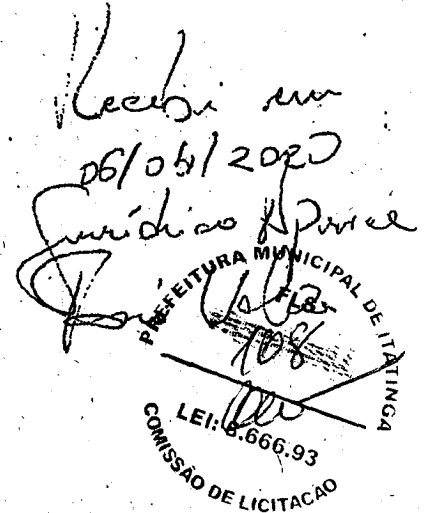 Recebi em
06/04/2020
Jurídico
PREFEITURA MUNICIPAL DE ITATINGA
Fls.
108
LEI: 8.666.93
COMISSÃO DE LICITAÇÃO